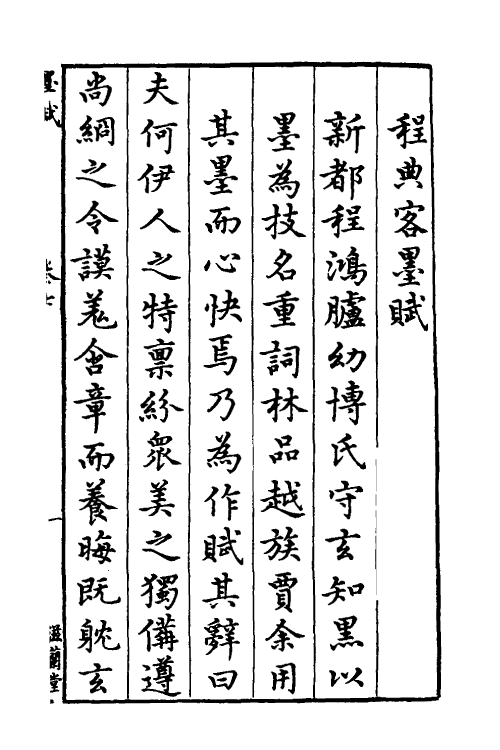 程典客墨賦
新都程鴻臚幼博氏守玄知黑以
墨為技名重詞林品越族賈余用
其墨而心快焉乃為作賦其辭曰
夫何伊人之特禀紛衆美之獨備遵
尚絅之令謨羌含章而養晦既躭玄
墨賦
卷七
一
滋蘭堂